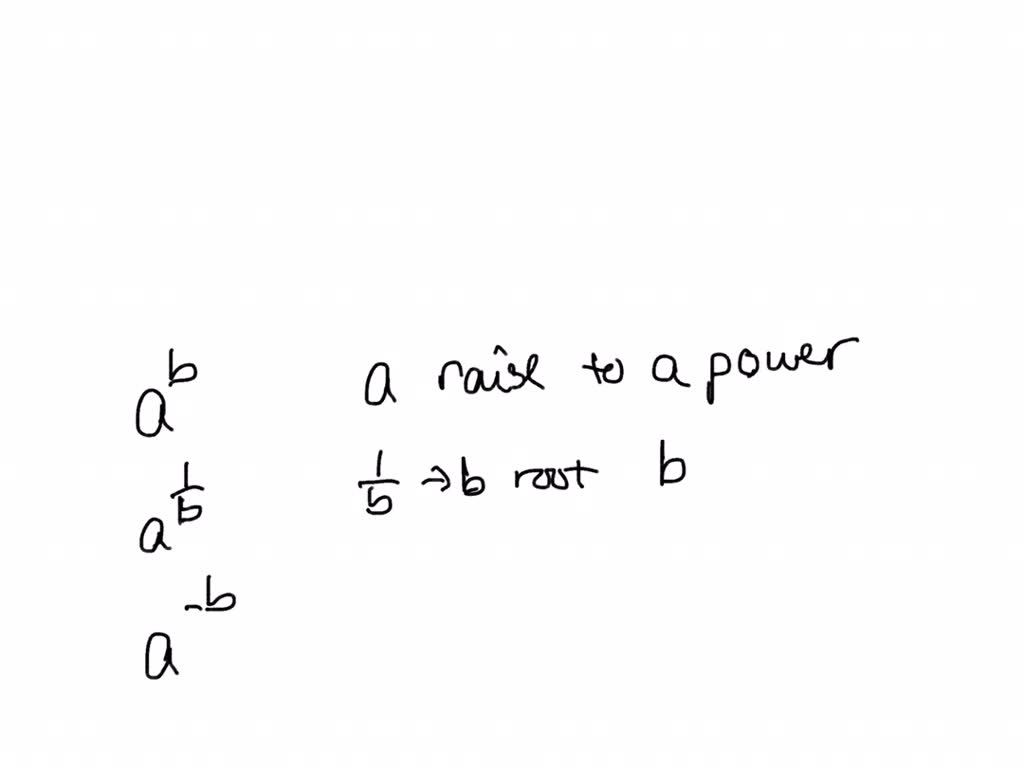 a^b a raise to a power
a^{1/b} 1/b → b root b
a^{-b}